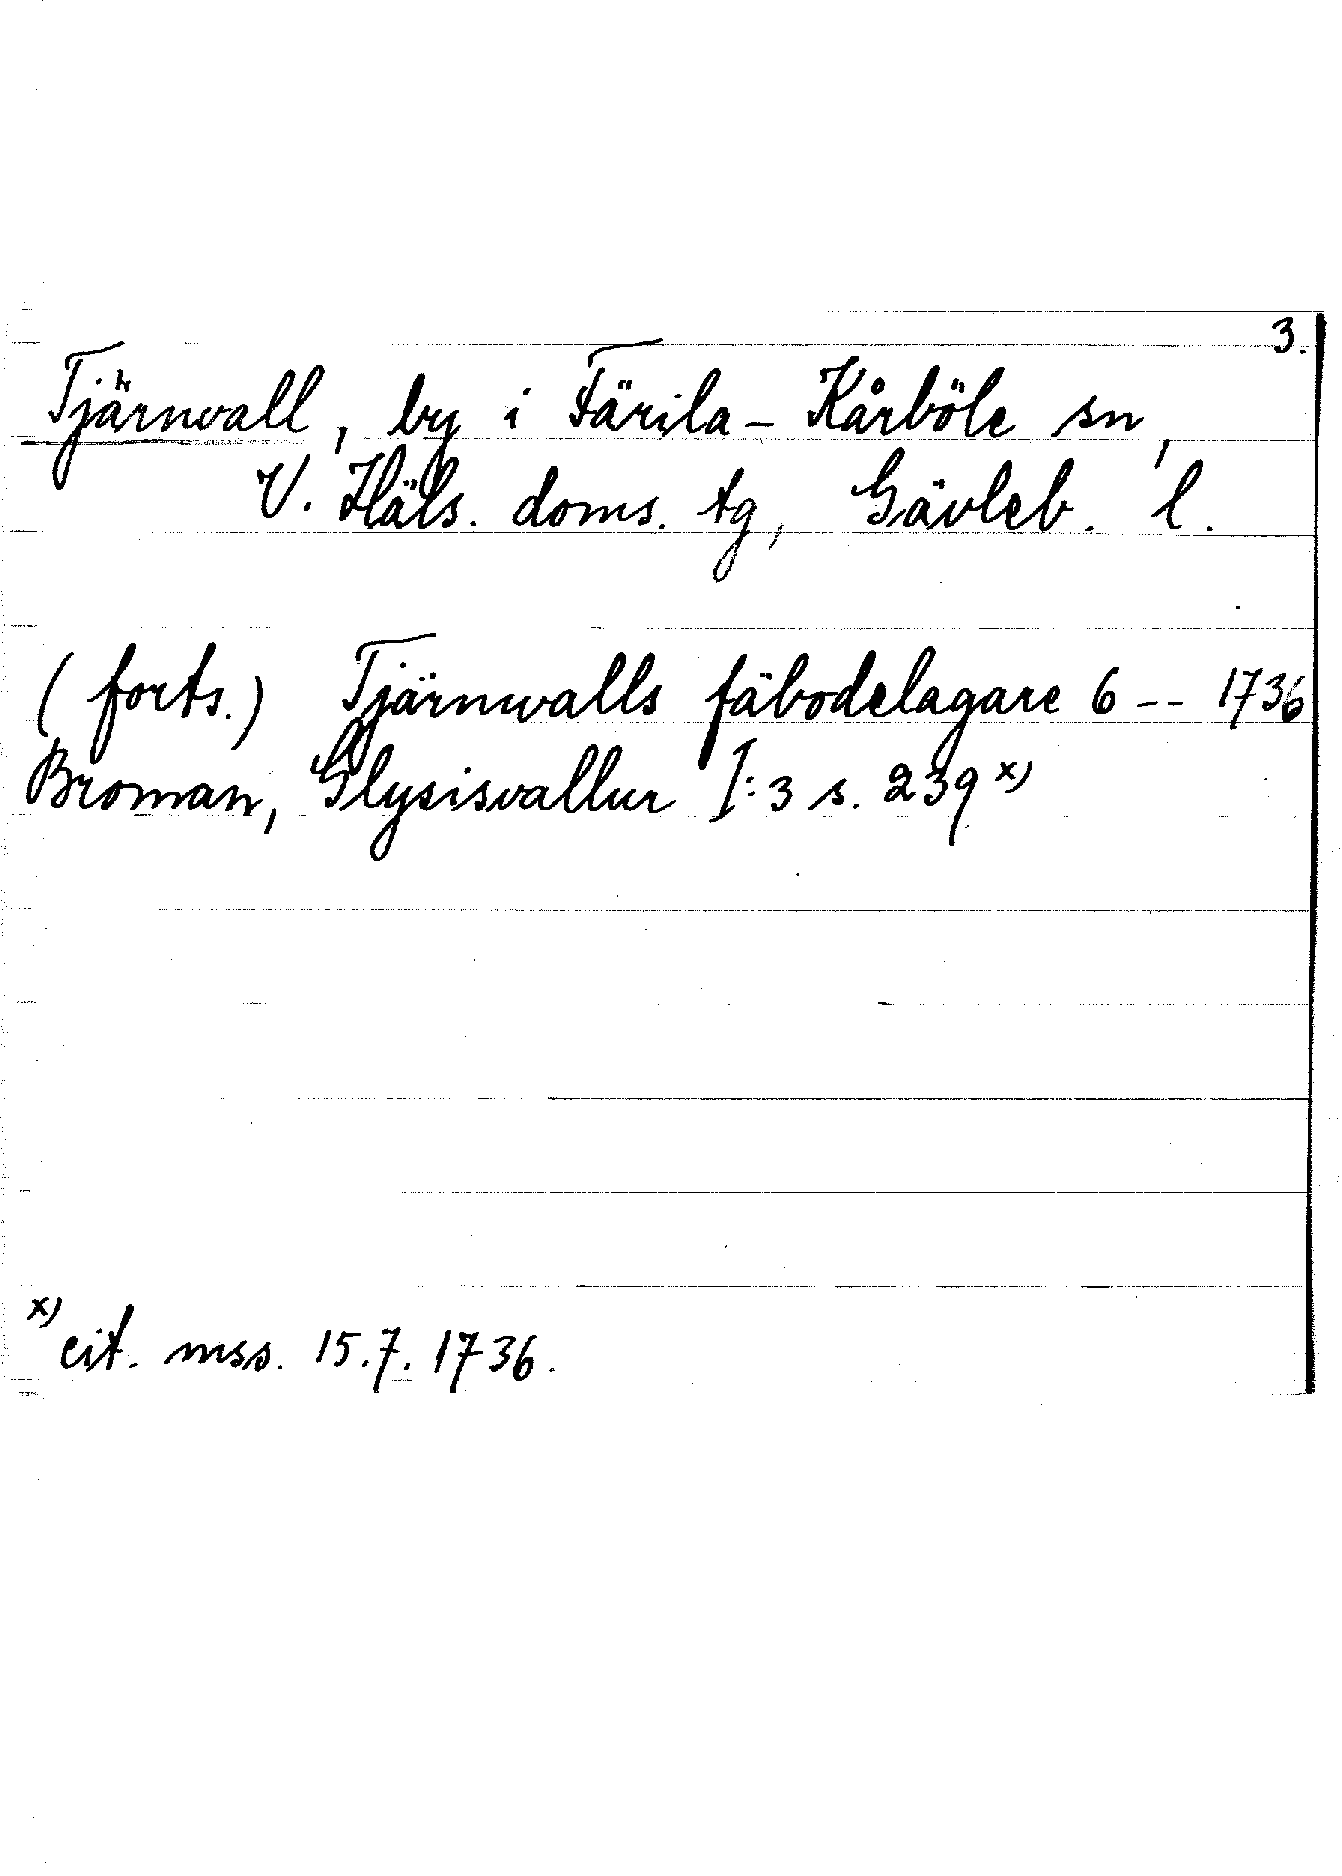 3.
Tjärnvall, by i Färila-Kårböle sn,
V. Häls. doms. tg, Gävleb. l.
(forts.) Tjärnwalls fäbodelagare 6 -- 1736
Broman, Glysisvallur I:3 s. 239 x)
x) cit. mss. 15.7.1736.